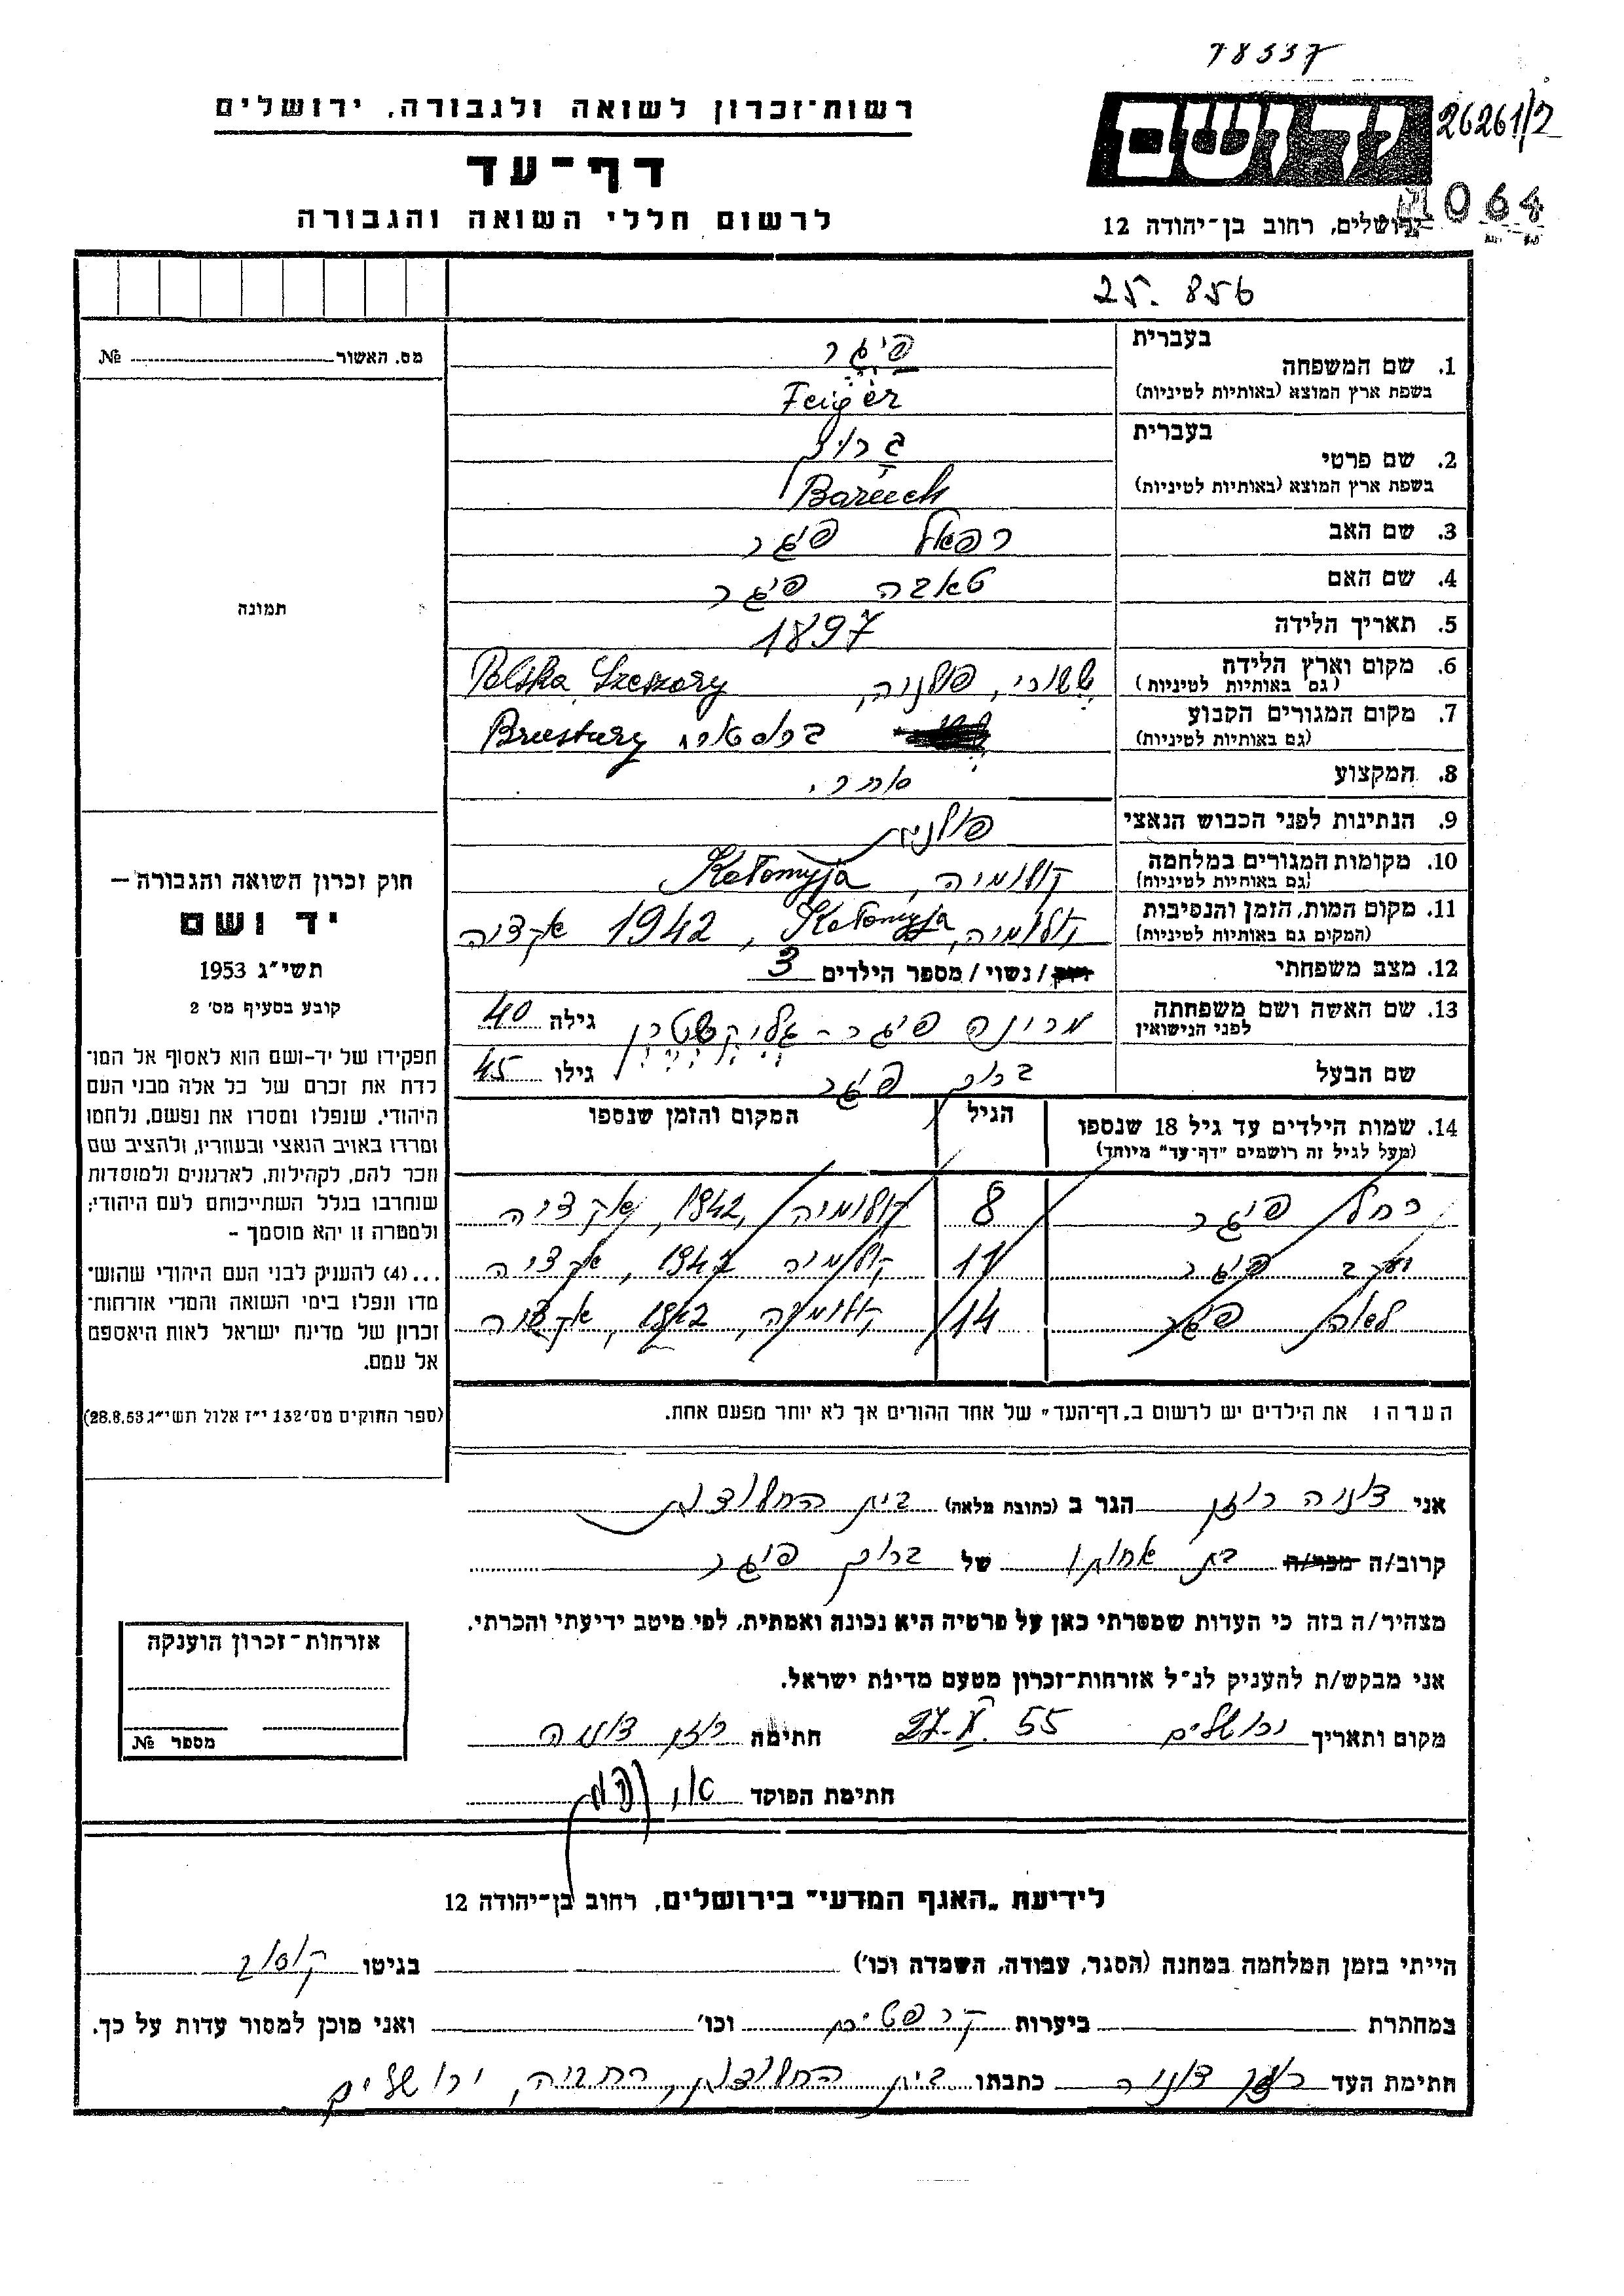 78337
רשות־זכרון לשואה ולגבורה, ירושלים
יד ושם
26261/2
דף־עד
1064
לרשום חללי השואה והגבורה
ירושלים, רחוב בן־יהודה 12
25.856
מס. האשור №
בעברית
1. שם המשפחה
פיגר
בשפת ארץ המוצא (באותיות לטיניות)
Feiger
בעברית
2. שם פרטי
ברוך
בשפת ארץ המוצא (באותיות לטיניות)
Baruch
3. שם האב רפאל פיגר
4. שם האם טאבה פיגר
5. תאריך הלידה 1897
6. מקום וארץ הלידה ששורי, פולניה, Polska Szeszory
(גם באותיות לטיניות)
7. מקום המגורים הקבוע ברוסטורי Brustury
(גם באותיות לטיניות)
8. המקצוע סוחר.
9. הנתינות לפני הכבוש הנאצי פולנית
10. מקומות המגורים במלחמה קולומיה, Kołomyja
(גם באותיות לטיניות)
11. מקום המות, הזמן והנסיבות קולומיה, Kołomyja, 1942 אקציה
(המקום גם באותיות לטיניות)
12. מצב משפחתי רוק / נשוי / מספר הילדים 3
13. שם האשה ושם משפחתה מרינה פיגר - גליקשטרן גילה 40
לפני הנישואין
שם הבעל ברוך פיגר גילו 45
14. שמות הילדים עד גיל 18 שנספו הגיל המקום והזמן שנספו
(מעל לגיל זה רושמים "דף־עד" מיוחד)
רחל פיגר 8 קולומיה, 1942, אקציה
יעקב פיגר 11 קולומיה 1942, אקציה
לאה פיגר 14 קולומיה, 1942, אקציה
הערה: את הילדים יש לרשום ב„דף־העד" של אחד ההורים אך לא יותר מפעם אחת.
תמונה
חוק זכרון השואה והגבורה —
יד ושם
תשי"ג 1953
קובע בסעיף מס' 2
תפקידו של יד־ושם הוא לאסוף אל המו־
לדת את זכרם של כל אלה מבני העם
היהודי, שנפלו ומסרו את נפשם, נלחמו
ומרדו באויב הנאצי ובעוזריו, ולהציב שם
וזכר להם, לקהילות, לארגונים ולמוסדות
שנחרבו בגלל השתייכותם לעם היהודי;
ולמטרה זו יהא מוסמך –
...(4) להעניק לבני העם היהודי שהוש־
מדו ונפלו בימי השואה והמרי אזרחות־
זכרון של מדינת ישראל לאות היאספם
אל עמם.
(ספר החוקים מס' 132 י"ז אלול תשי"ג 28.8.53)
אני צוניה רוזן הגר ב (כתובת מלאה) בית החלוצות
קרוב/ה מכר/ה בת אחותו של ברוך פיגר
מצהיר/ה בזה כי העדות שמסרתי כאן על פרטיה היא נכונה ואמתית, לפי מיטב ידיעתי והכרתי.
אני מבקש/ת להעניק לנ"ל אזרחות־זכרון מטעם מדינת ישראל.
מקום ותאריך ירושלים 27.X.55 חתימה רוזן צוניה
חתימת הפוקד
אזרחות־זכרון הוענקה
מספר №
לידיעת „האגף המדעי" בירושלים, רחוב בן־יהודה 12
הייתי בזמן המלחמה במחנה (הסגר, עבודה, השמדה וכו') בגיטו קוסוב
במחתרת ביערות קרפטים וכו' ואני מוכן למסור עדות על כך.
חתימת העד רוזן צוניה כתבתו בית החלוצות, רחביה, ירושלים